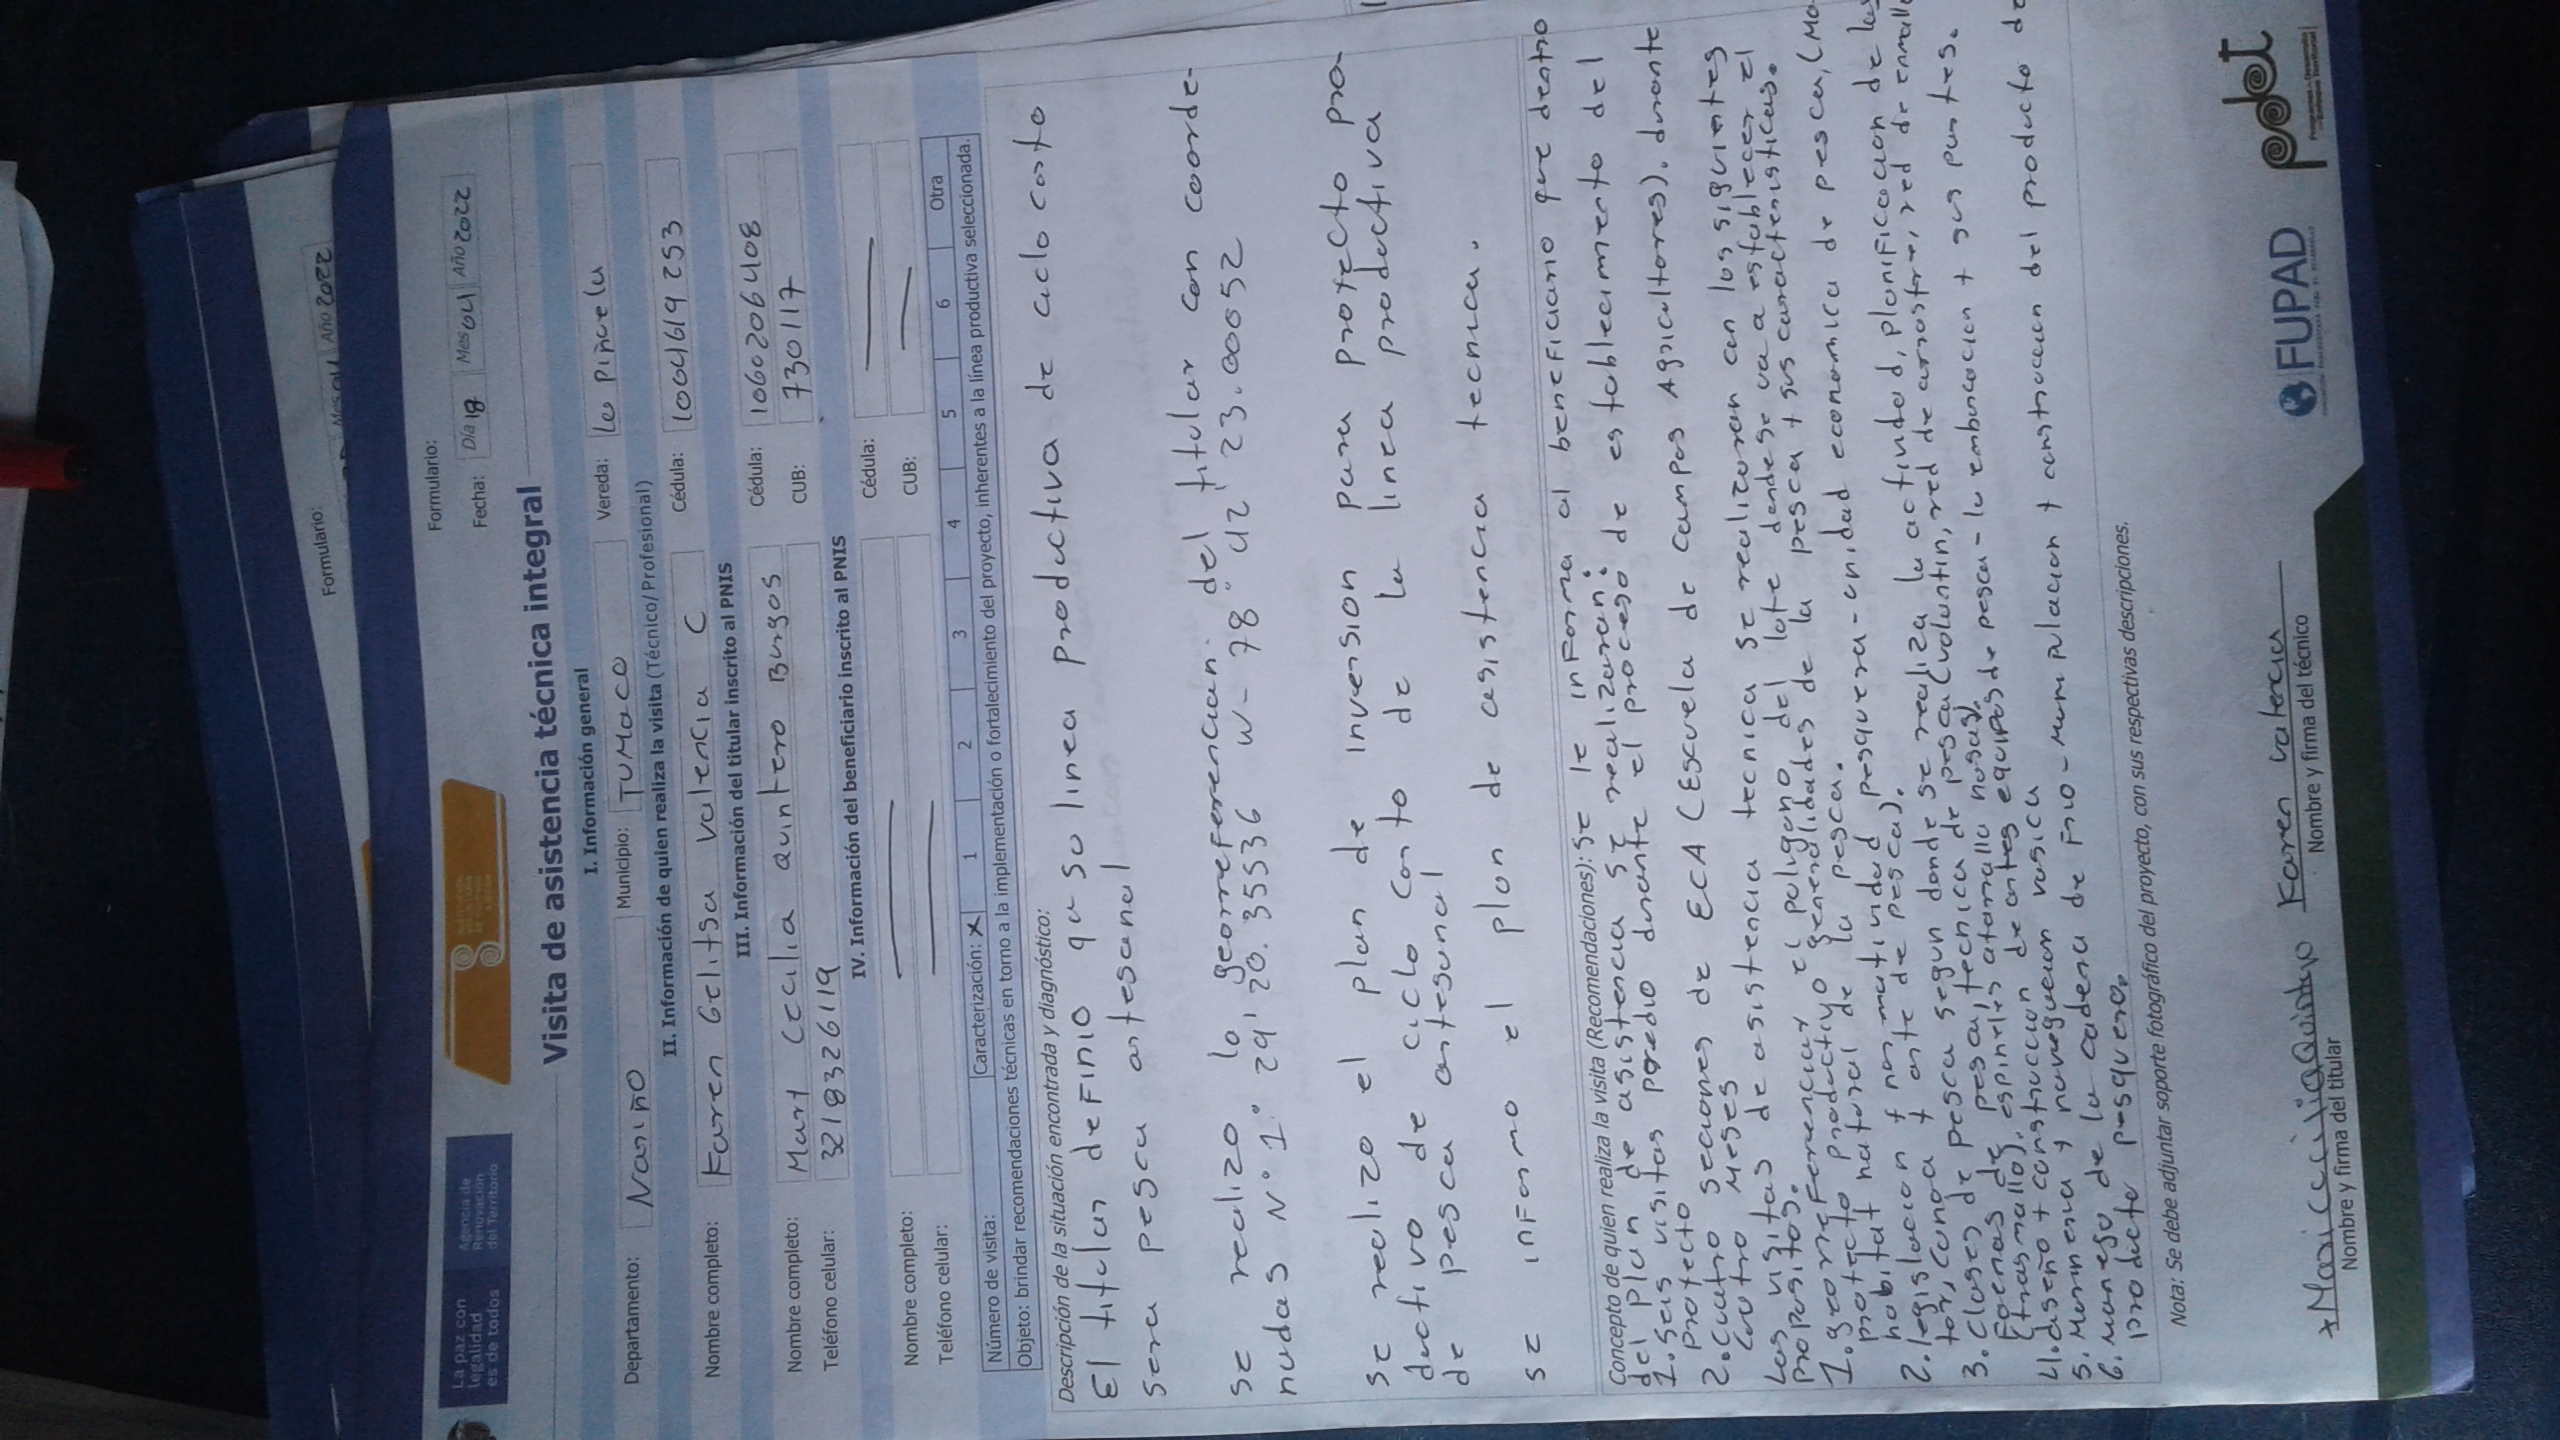 Formulario:
Mes 04 Año 2022
La paz con
legalidad
es de todos
Agencia de
Renovación
del Territorio
Formulario:
Fecha: Día 18 Mes 04 Año 2022
Visita de asistencia técnica integral
I. Información general
Departamento: Nariño Municipio: TUMaco Vereda: la piñuela
II. Información de quien realiza la visita (Técnico/ Profesional)
Nombre completo: Karen Gelitsa Valencia C Cédula: 1004619253
III. Información del titular inscrito al PNIS
Nombre completo: Mary Cecilia Quintero Burgos Cédula: 1060206408
Teléfono celular: 3218326119 CUB: 730117
IV. Información del beneficiario inscrito al PNIS
Nombre completo: Cédula:
Teléfono celular: CUB:
Número de visita: Caracterización: X 1 2 3 4 5 6 Otra
Objeto: brindar recomendaciones técnicas en torno a la implementación o fortalecimiento del proyecto, inherentes a la línea productiva seleccionada.
Descripción de la situación encontrada y diagnóstico:
El titular deFiniO qu su linea productiva de ciclo corto
sera pesca artesanal
se realizo la georreferenciacion del titular con coorde-
nadas N° 1° 29' 20.35536 W- 78° 42' 23.00052
se realizo el plan de inversion para proyecto pro
ductivo de ciclo corto de la linea productiva
de pesca artesanal
se informo el plan de asistencia tecnica.
Concepto de quien realiza la visita (Recomendaciones): se le informa al beneficiario que dentro
del plan de asistencia se realizaran:
1. seis visitas predio durante el proceso de establecimiento del
proyecto
2. cuatro seciones de ECA (Escuela de campos Agricultores). durante
cuatro meses
Las visitas de asistencia tecnica se realizaran con los siguientes
propositos.
1. georreferenciar el poligono del lote donde se va a establecer el
proyecto productivo generalidades de la pesca y sus caracteristicas.
habitat natural de la pesca.
2. legislacion y normatividad pesquera - unidad economica de pesca, (Mo-
tor, canoa y arte de pesca).
3. clases de pesca segun donde se realiza la actividad, planificacion de las
Faenas de pesca, tecnica de pesca (volantin, red de arrastre, red de enmalle
(trasmallo), espineles atarralla nasas).
4. diseño y construccion de artes equipos de pesca - la embarcacion y sus partes.
5. Marineria y navegacion vasica
6. manejo de la cadena de frio - manipulacion y construccion del producto de
producto pesquero.
Nota: Se debe adjuntar soporte fotográfico del proyecto, con sus respectivas descripciones.
Nombre y firma del titular
Karen Valencia
Nombre y firma del técnico
FUPAD
pdet